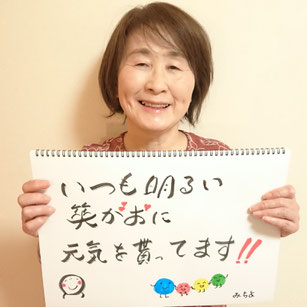 いつも明るい
笑がおに
元気を貰ってます!!
みちよ